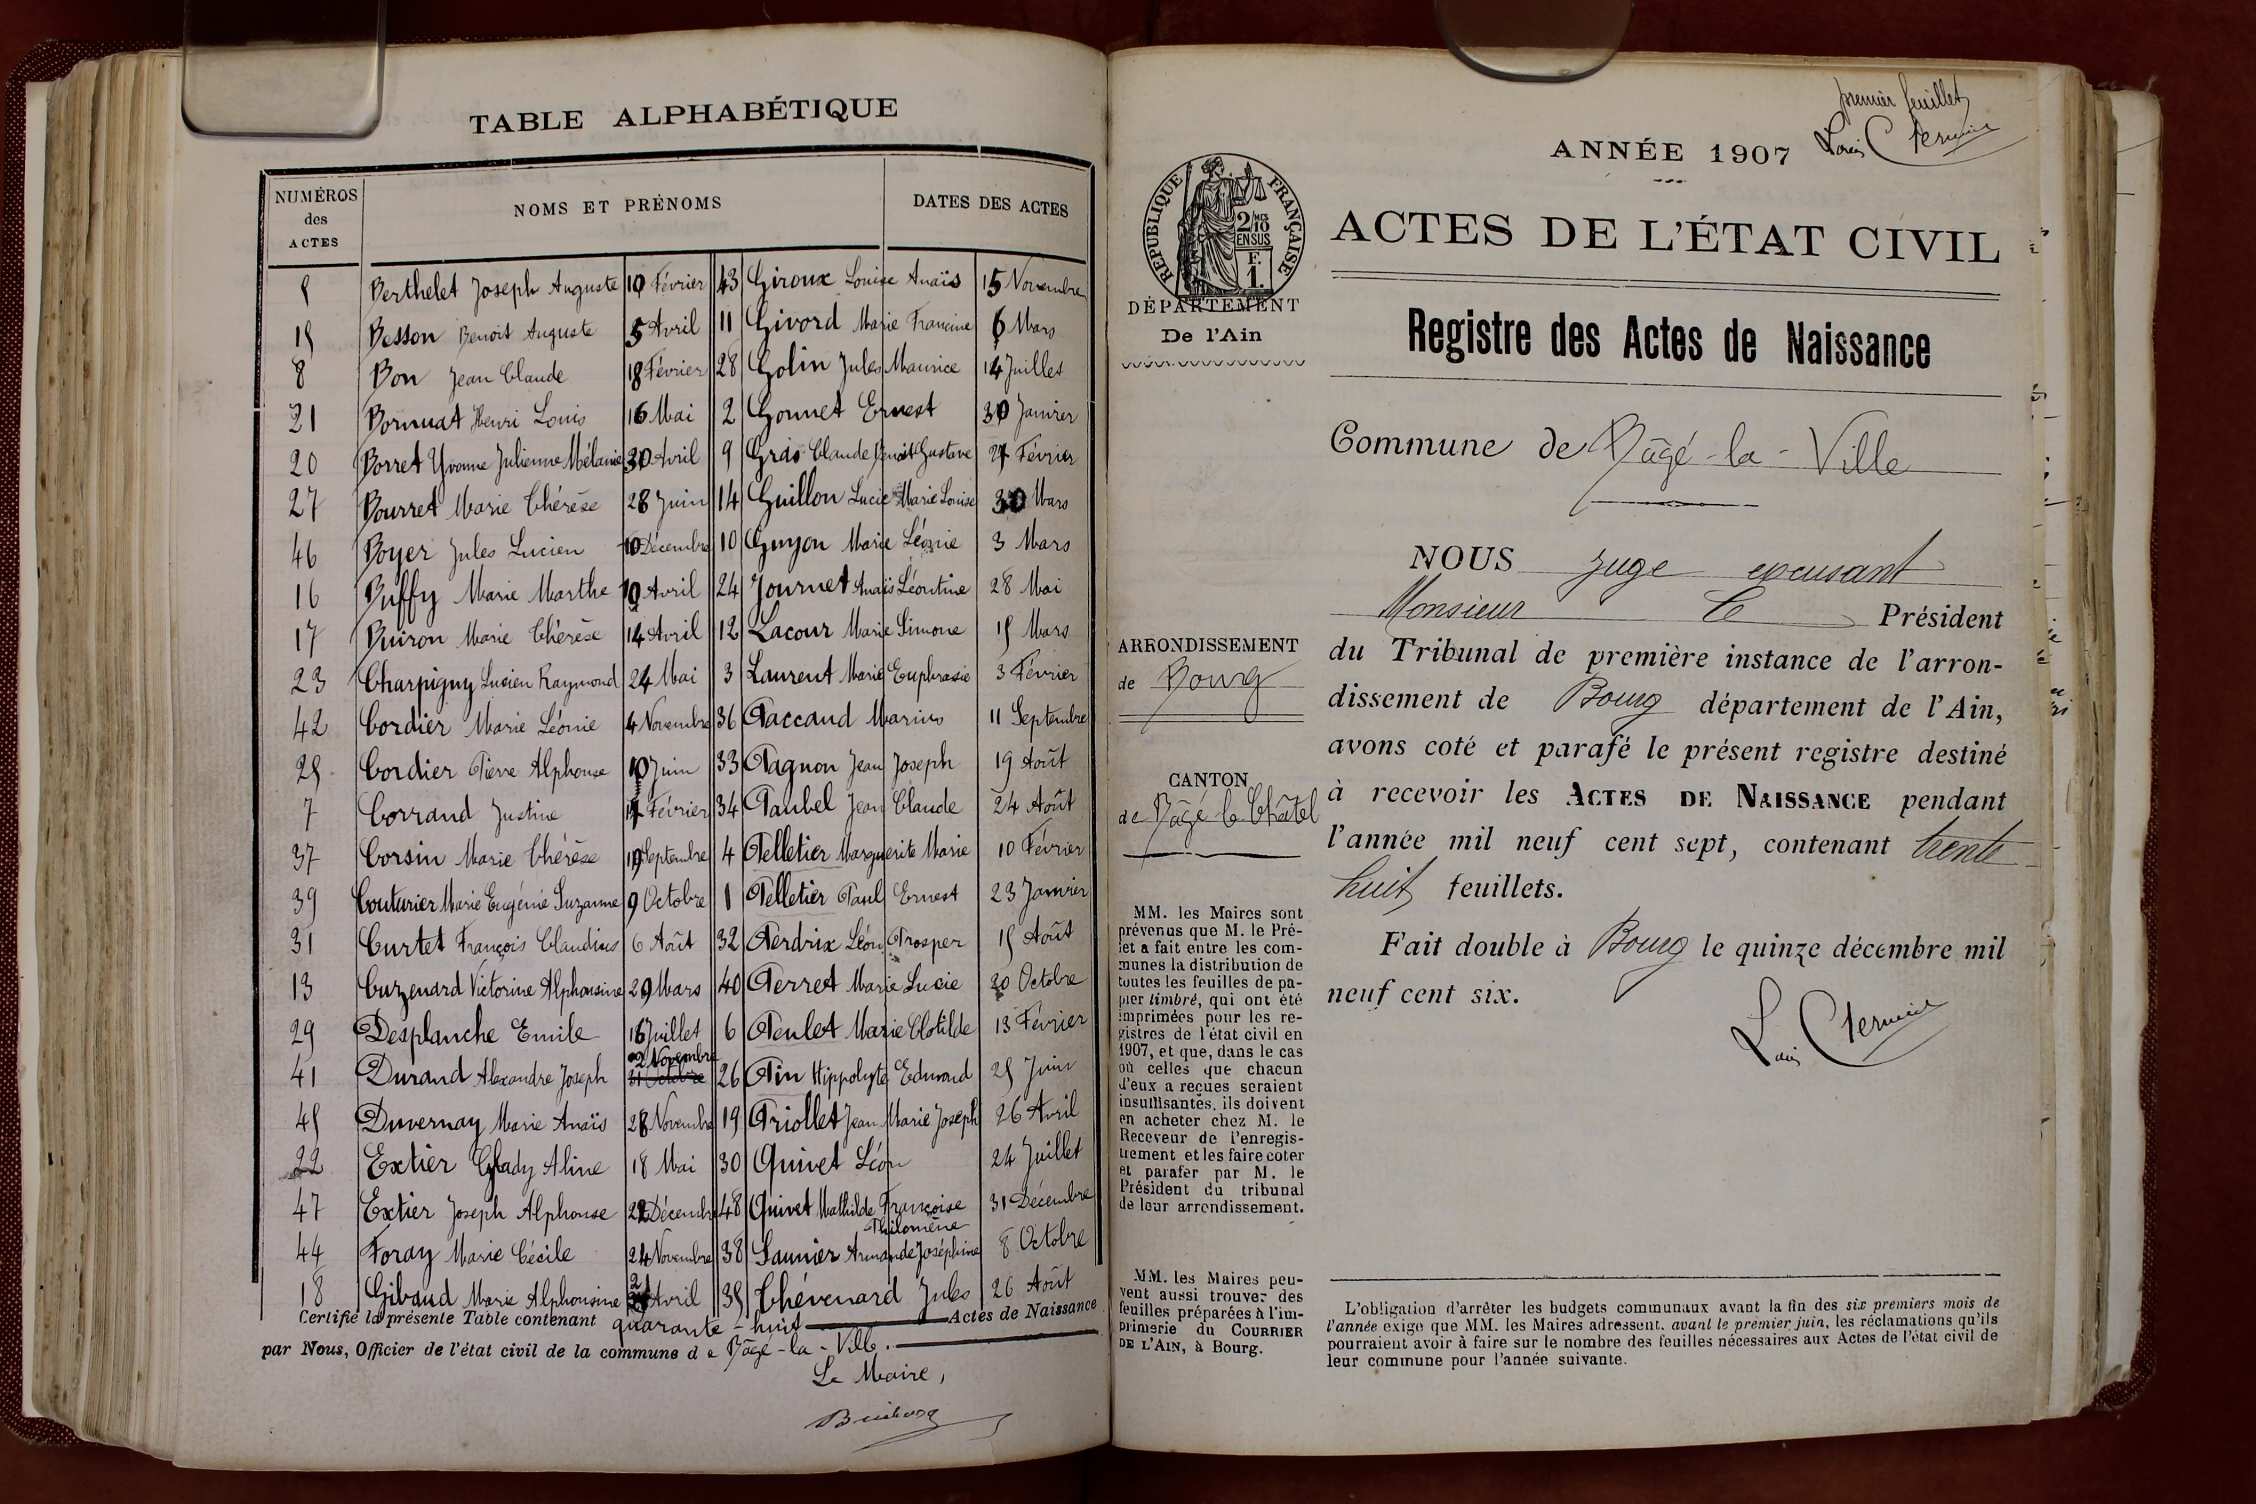 TABLE ALPHABÉTIQUE
NUMÉROS des ACTES
NOMS ET PRÉNOMS
DATES DES ACTES
5 Berthelet Joseph Auguste 10 Février
15 Besson Benoit Auguste 5 Avril
8 Bon Jean Claude 18 Février
21 Bornuat Henri Louis 16 Mai
20 Borret Yvonne Julienne Mélanie 30 Avril
27 Bourret Marie Thérèse 28 Juin
46 Boyer Jules Lucien 10 Décembre
16 Buffy Marie Marthe 10 Avril
17 Buiron Marie Thérèse 14 Avril
23 Charpigny Lucien Raymond 24 Mai
42 Cordier Marie Léonie 4 Novembre
25 Cordier Pierre Alphonse 10 Juin
7 Corrand Justine 17 Février
37 Corsin Marie Thérèse 19 Septembre
39 Couturier Marie Eugénie Suzanne 9 Octobre
31 Curtet François Claudius 6 Août
13 Cuzenard Victorine Alphonsine 29 Mars
29 Desplanche Emile 16 Juillet
41 Durand Alexandre Joseph 31 Octobre 2 Novembre
45 Duvernay Marie Anaïs 28 Novembre
22 Extier Glady Aline 18 Mai
47 Extier Joseph Alphonse 22 Décembre
44 Foray Marie Cécile 24 Novembre
18 Gibaud Marie Alphonsine Avril
43 Giroux Louise Anaïs 15 Novembre
11 Givord Marie Francine 6 Mars
28 Golin Jules Maurice 14 Juillet
2 Gonnet Ernest 30 Janvier
9 Gras Claude Benoit Gustave 27 Février
14 Guillon Lucie Marie Louise 30 Mars
10 Guyon Marie Léonie 3 Mars
24 Journet Anaïs Léontine 28 Mai
12 Lacour Marie Simone 15 Mars
3 Laurent Marie Euphrasie 3 Février
36 Paccaud Marius 11 Septembre
33 Pagnon Jean Joseph 19 Août
34 Paubel Jean Claude 24 Août
4 Pelletier Marguerite Marie 10 Février
1 Pelletier Paul Ernest 23 Janvier
32 Perdrix Léon Prosper 15 Août
40 Perret Marie Lucie 20 Octobre
6 Peulet Marie Clotilde 13 Février
26 Pin Hippolyte Edmond 25 Juin
19 Priollet Jean Marie Joseph 26 Avril
30 Quivet Léon 24 Juillet
48 Quivet Mathilde Françoise Philomène 31 Décembre
38 Saunier Armande Joséphine 8 Octobre
35 Thévenard Jules 26 Août
Certifié la présente Table contenant quarante-huit Actes de Naissance
par Nous, Officier de l'état civil de la commune de Bâgé-la-Ville.
Le Maire,
premier feuillet
Louis
ANNÉE 1907
RÉPUBLIQUE FRANÇAISE
2/10 EN SUS
F. 1.
ACTES DE L'ÉTAT CIVIL
DÉPARTEMENT
De l'Ain
Registre des Actes de Naissance
Commune de Bâgé-la-Ville
NOUS Juge excusant
Monsieur le Président
du Tribunal de première instance de l'arron-
dissement de Bourg département de l'Ain,
avons coté et parafé le présent registre destiné
à recevoir les ACTES DE NAISSANCE pendant
l'année mil neuf cent sept, contenant trente
huit feuillets.
Fait double à Bourg le quinze décembre mil
neuf cent six.
Louis
ARRONDISSEMENT
de Bourg
CANTON
de Bâgé le Châtel
MM. les Maires sont
prévenus que M. le Pré-
fet a fait entre les com-
munes la distribution de
toutes les feuilles de pa-
pier timbré, qui ont été
imprimées pour les re-
gistres de l'état civil en
1907, et que, dans le cas
où celles que chacun
d'eux a reçues seraient
insuffisantes, ils doivent
en acheter chez M. le
Receveur de l'enregis-
trement et les faire coter
et parafer par M. le
Président du tribunal
de leur arrondissement.
MM. les Maires peu-
vent aussi trouver des
feuilles préparées à l'im-
primerie du COURRIER
DE L'AIN, à Bourg.
L'obligation d'arrêter les budgets communaux avant la fin des six premiers mois de
l'année exige que MM. les Maires adressent, avant le premier juin, les réclamations qu'ils
pourraient avoir à faire sur le nombre des feuilles nécessaires aux Actes de l'état civil de
leur commune pour l'année suivante.